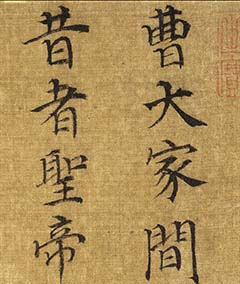 曹大家間
昔者聖帝